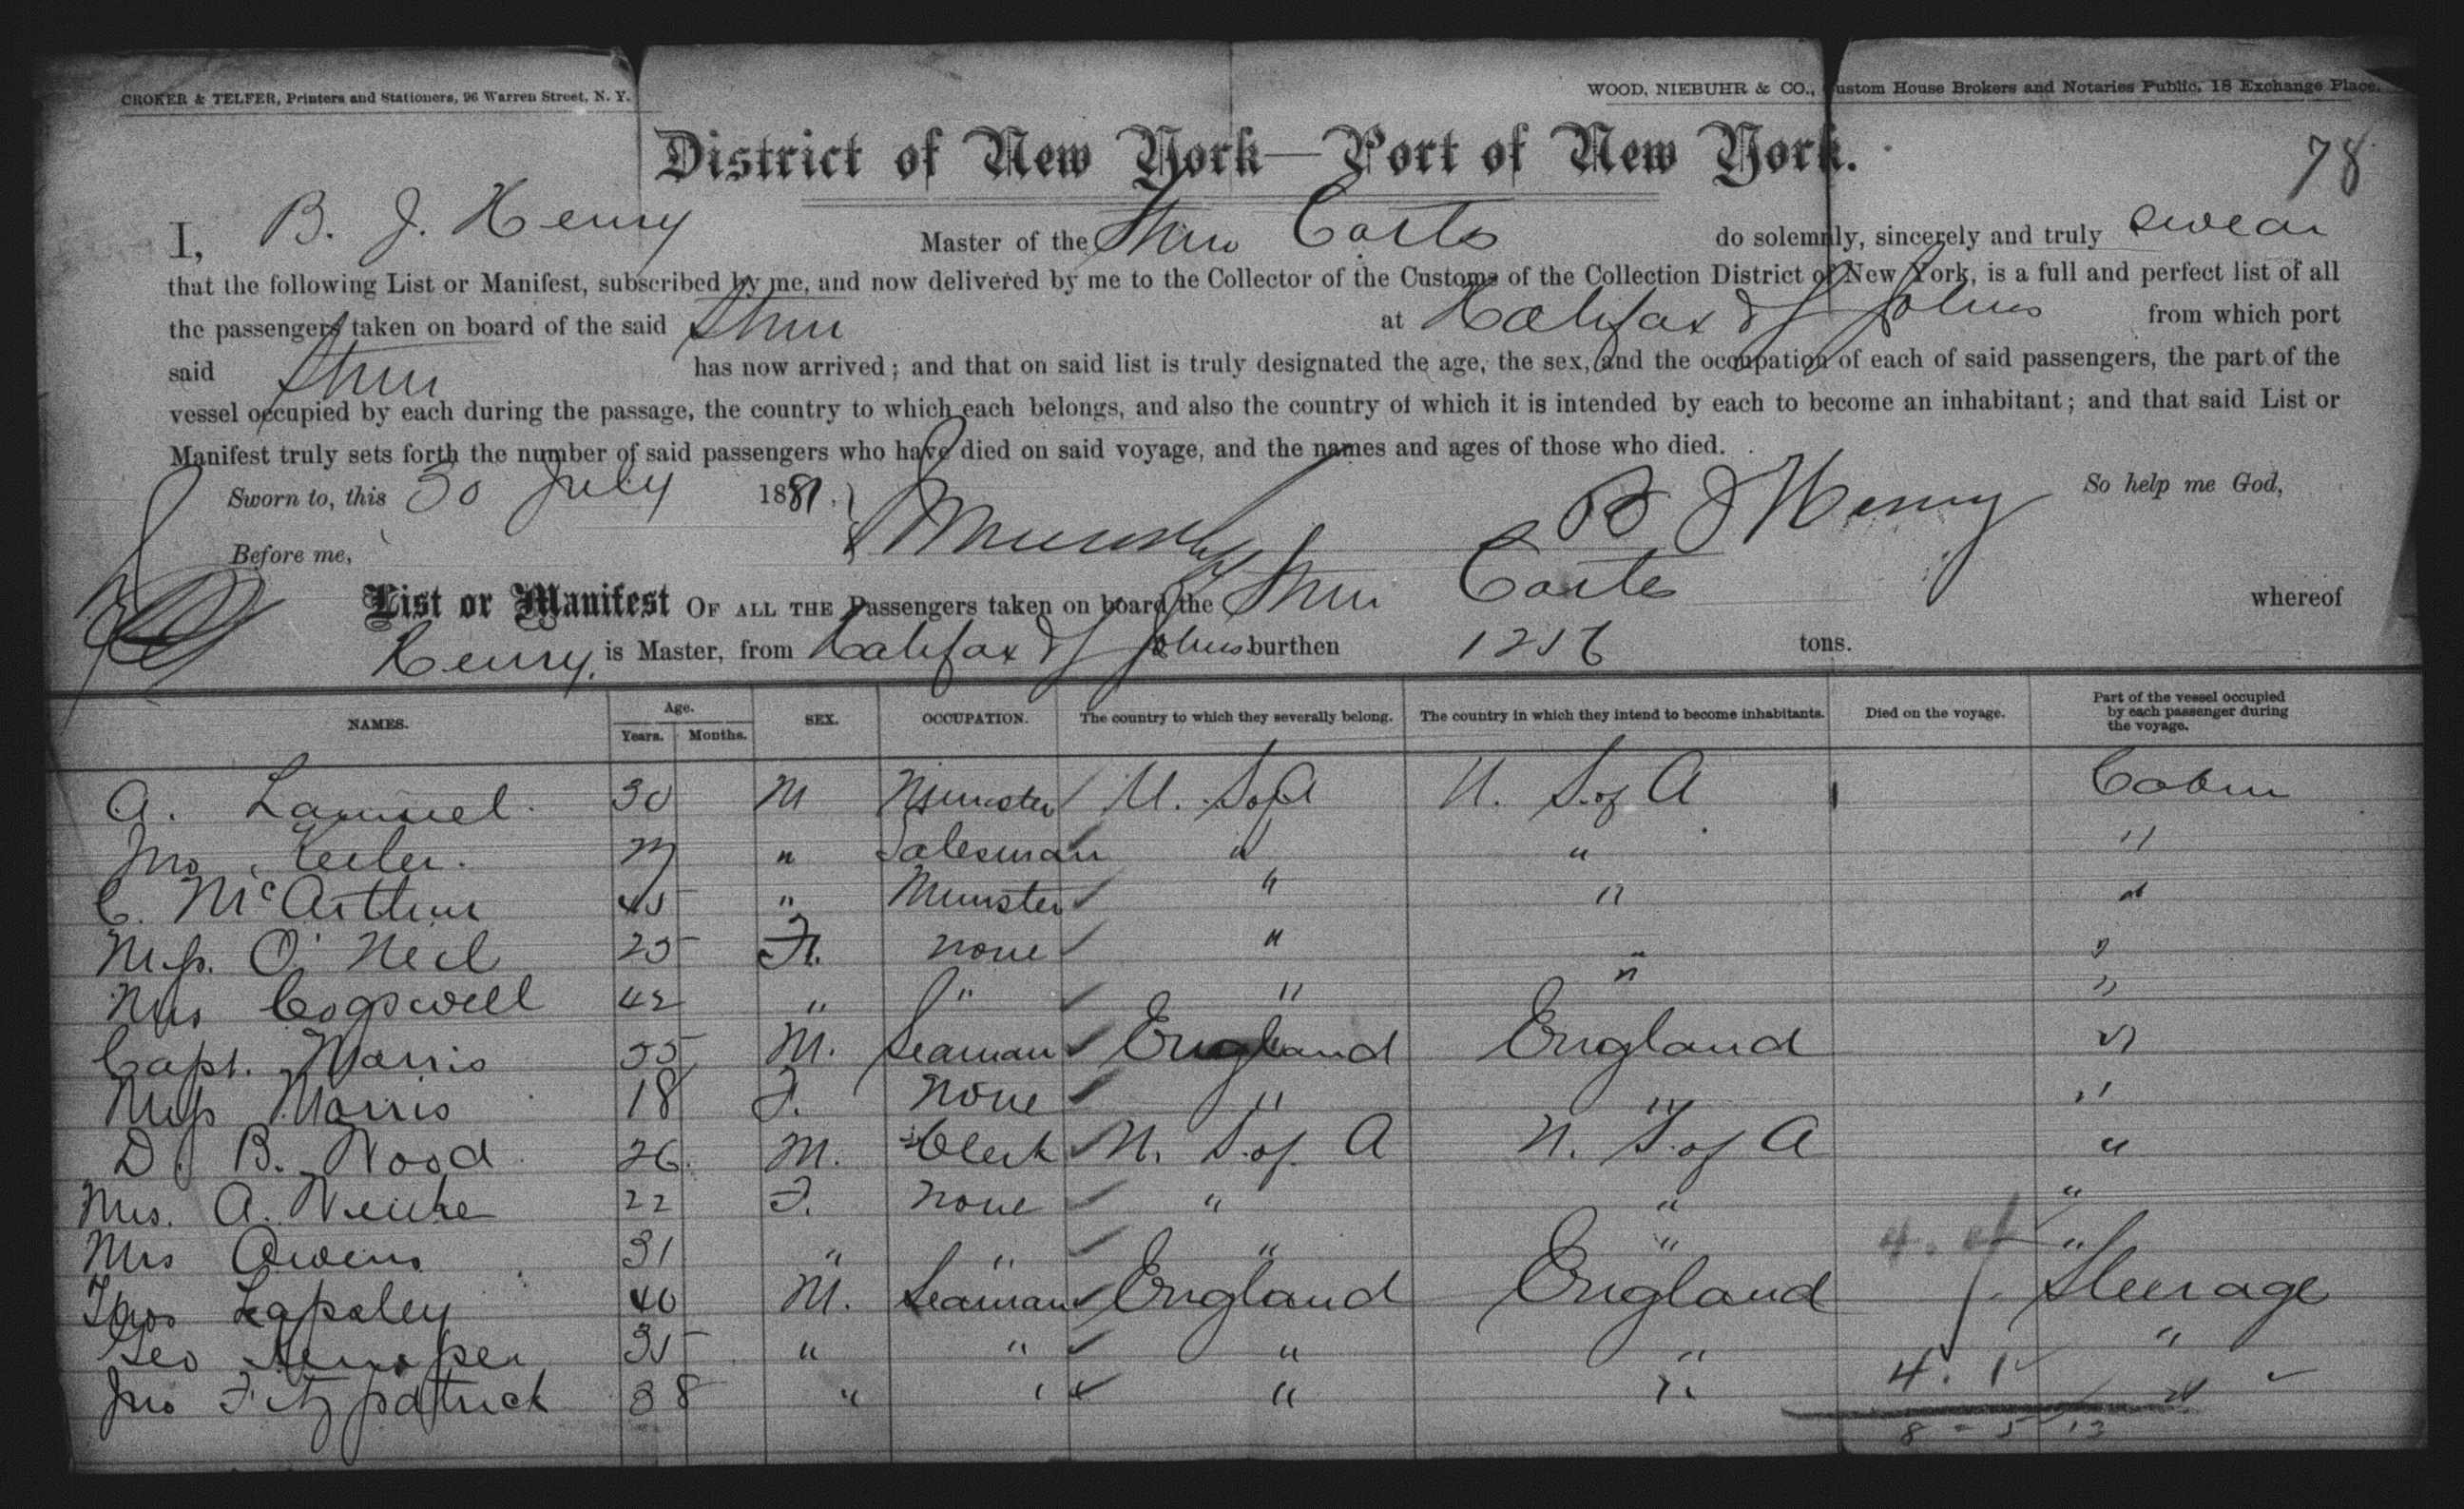 CROKER & TELFER, Printers and Stationers, 96 Warren Street, N. Y.
WOOD, NIEBUHR & CO., Custom House Brokers and Notaries Public, 18 Exchange Place.
District of New York—Port of New York.
78
I, B. J. Henry Master of the Stmr Cortes do solemnly, sincerely and truly swear
that the following List or Manifest, subscribed by me, and now delivered by me to the Collector of the Customs of the Collection District of New York, is a full and perfect list of all
the passengers taken on board of the said Stmr at Halifax & St Johns from which port
said Stmr has now arrived; and that on said list is truly designated the age, the sex, and the occupation of each of said passengers, the part of the
vessel occupied by each during the passage, the country to which each belongs, and also the country of which it is intended by each to become an inhabitant; and that said List or
Manifest truly sets forth the number of said passengers who have died on said voyage, and the names and ages of those who died.
Sworn to, this 30 July 1881. B J Henry So help me God,
Before me,
List or Manifest OF ALL THE Passengers taken on board the Stmr Cortes whereof
Henry. is Master, from Halifax & St Johns burthen 1256 tons.
NAMES. Age. Years. Months. SEX. OCCUPATION. The country to which they severally belong. The country in which they intend to become inhabitants. Died on the voyage. Part of the vessel occupied by each passenger during the voyage.
A. 30 M Minister U. S of A U. S. of A Cabin
Jno " Salesman " " "
C. McArthur 45 " Minister " " "
Miss. O'Neil 25 F. none " " "
Mrs Cogswell 42 " " " " "
Capt. Morris 55 M. Seaman England England "
Miss Morris 18 F. none " " "
D. B. Wood 26. M. Clerk U. S. of A U. S. of A "
Mrs. A. 22 F. none " " "
Mrs Owens 31 " " " " "
Thos Lapsley 40 M. Seaman England England Steerage
Geo 35 " " " " "
Jno Fitzpatrick 38 " " " " 4. 1 "
8 - 5 13